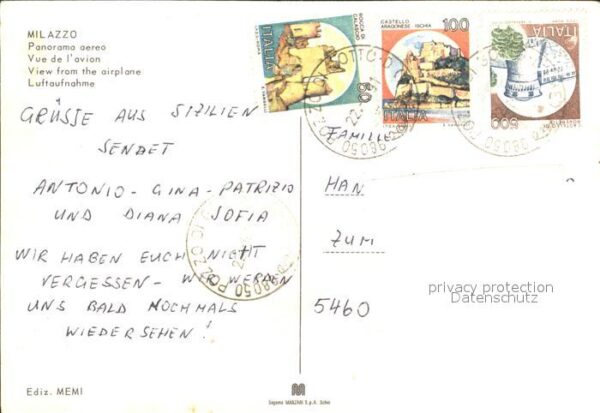 MILAZZO
Panorama aereo
Vue de l'avion
View from the airplane
Luftaufnahme
GRÜSSE AUS SIZILIEN
SENDET
ANTONIO - GINA - PATRIZIO
UND DIANA SOFIA
WIR HABEN EUCH NICHT
VERGESSEN - WIR WERDEN
UNS BALD NOCHMALS
WIEDERSEHEN!
Ediz. MEMI
ROCCA DI
CALASCIO
60
ITALIA
CASTELLO
ARAGONESE ISCHIA
100
ITALIA
ITALIA
500
98050 POZZO DI G
98050
FAMILIE
HAN
ZUM
5460
privacy protection
Datenschutz